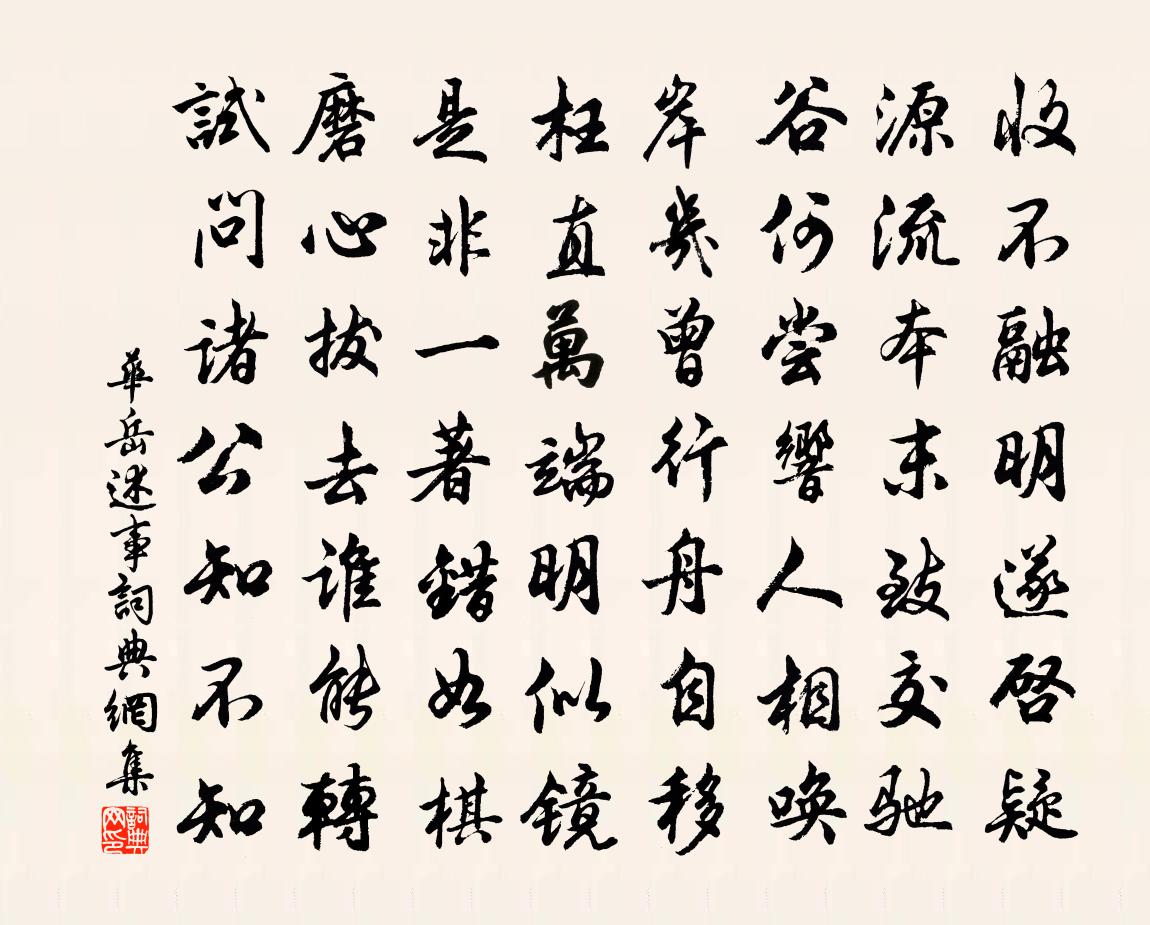 收不融明遂啓疑
源流本末致交馳
谷何嘗響人相喚
岸幾曾行舟自移
枉直萬端明似鏡
是非一著錯如棋
磨心拔去誰能轉
試問諸公知不知
華岳述事詞典網集
詞典網印